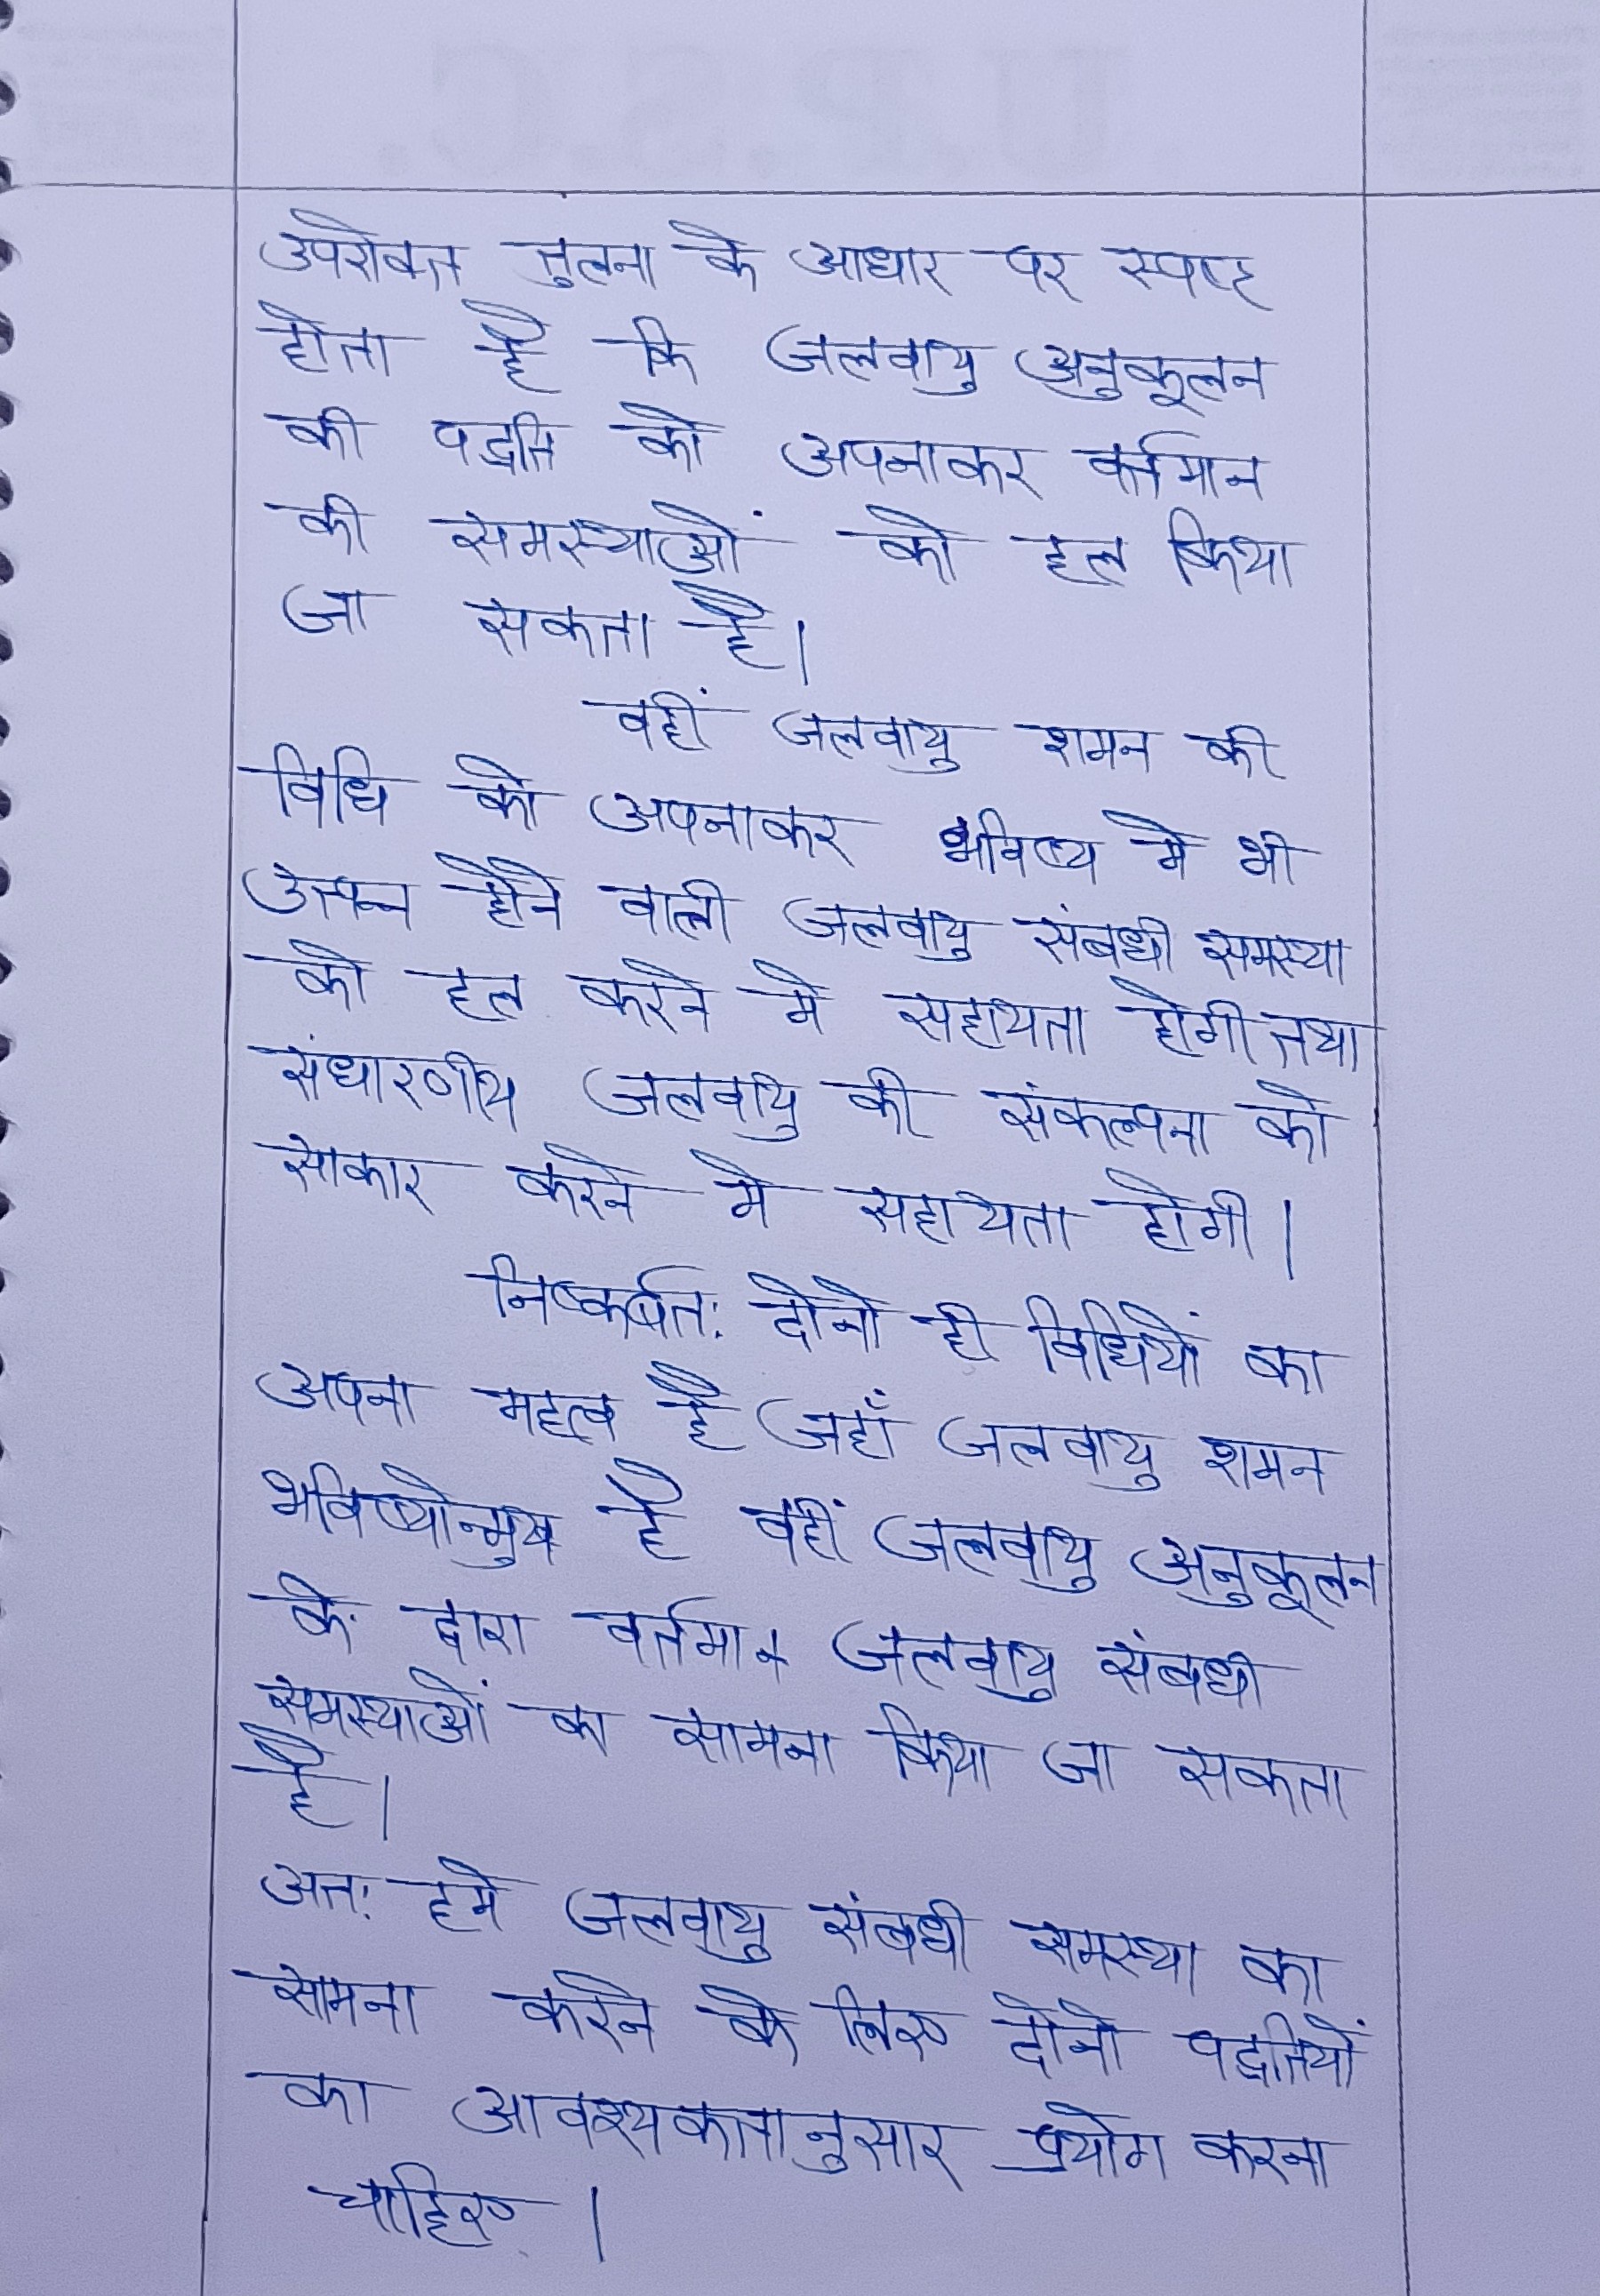 उपरोक्त तुलना के आधार पर स्पष्ट
होता है कि जलवायु अनुकूलन
की पद्धति को अपनाकर वर्तमान
की समस्याओं को हल किया
जा सकता है।
वहीं जलवायु शमन की
विधि को अपनाकर भविष्य मे भी
उत्पन्न होने वाली जलवायु संबधी समस्या
को हल करने मे सहायता होगी तथा
संधारणीय जलवायु की संकल्पना को
साकार करने मे सहायता होगी।
निष्कर्षत: दोनो ही विधियों का
अपना महत्व है जहाँ जलवायु शमन
भविष्योन्मुख है वहीं जलवायु अनुकूलन
के द्वारा वर्तमान जलवायु संबधी
समस्याओं का सामना किया जा सकता
है।
अत: हमे जलवायु संबधी समस्या का
सामना करने के लिए दोनो पद्धतियों
का आवश्यकतानुसार प्रयोग करना
चाहिए।